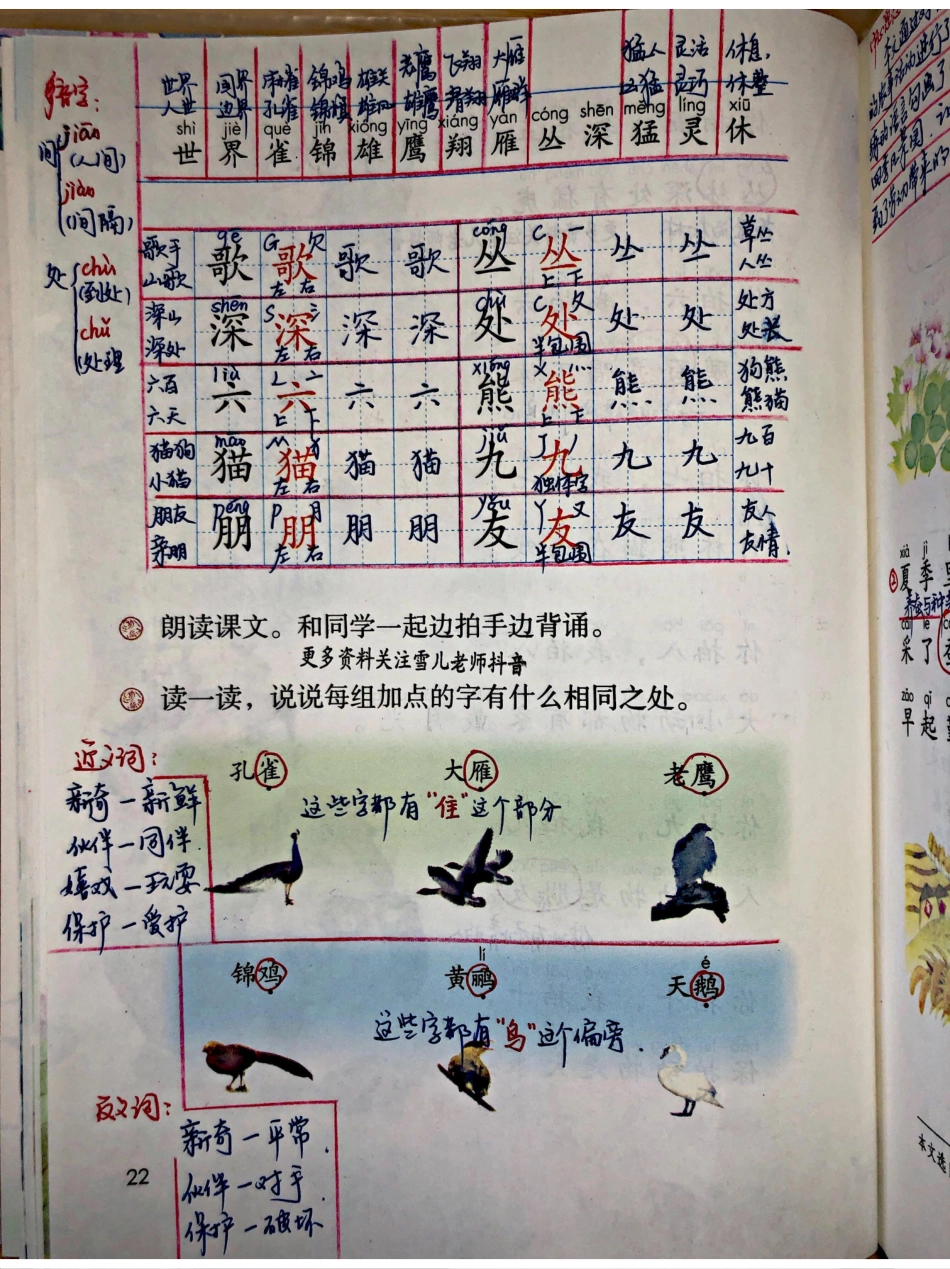 多音字：
间
jiān
(人间)
jiàn
(间隔)
处
chù
(到处)
chǔ
(处理
世界 国界 麻雀 锦鸡 雄关 老鹰 飞翔 大雁 猛人 灵活 休息，
人世 边界 孔雀 锦旗 雄鹰 翱翔 雁群 凶猛 灵巧 休整
shì jiè què jǐn xióng yīng xiáng yàn cóng shēn měng líng xiū
世 界 雀 锦 雄 鹰 翔 雁 丛 深 猛 灵 休
歌手 gē 歌 G 歌 欠 歌 歌 cóng 丛 C 丛 一 丛 丛 草丛
山歌 左 右 上 下 人丛
深山 shēn 深 S 深 氵 深 深 chù 处 C 处 夂 处 处 处方
深处 左 右 半包围
六百 liù 六 L 六 亠 六 六 xióng 熊 X 熊 灬 熊 熊 狗熊
六天 上 下 上 下 熊猫
猫狗 māo 猫 M 猫 犭 猫 猫 jiǔ 九 J 九 丿 九 九 九百
小猫 左 右 独体字 九十
朋友 péng 朋 P 朋 月 朋 朋 yǒu 友 Y 友 又 友 友 友人
亲朋 左 右 半包围 友情.
朗读课文。和同学一起边拍手边背诵。
更多资料关注雪儿老师抖音
读一读，说说每组加点的字有什么相同之处。
近义词：
新奇—新鲜
伙伴—同伴.
嬉戏—玩耍
保护—爱护
孔雀 大雁 老鹰
这些字都有"隹"这个部分
lí é
锦鸡 黄鹂 天鹅
这些字都有"鸟"这个偏旁.
反义词：
新奇—平常.
伙伴—对手
保护—破坏
22
xià jì
夏 季
养蚕与种
采 了
zǎo qǐ
早 起
本文选